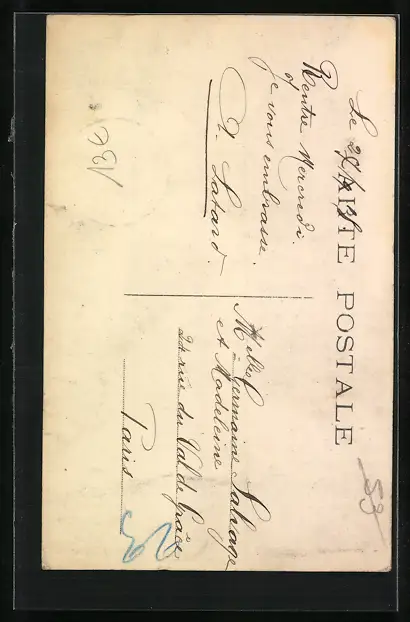 CARTE POSTALE
Le
Rentre Mercredi.
Je vous embrasse.
Latard.
Melles Germaine Sauvage
et Madeleine
24 rue du Val de Grâce
Paris